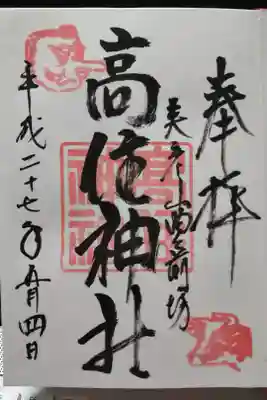 奉拝
英彦山豊前坊
高住神社
平成二十七年五月四日
高住神社